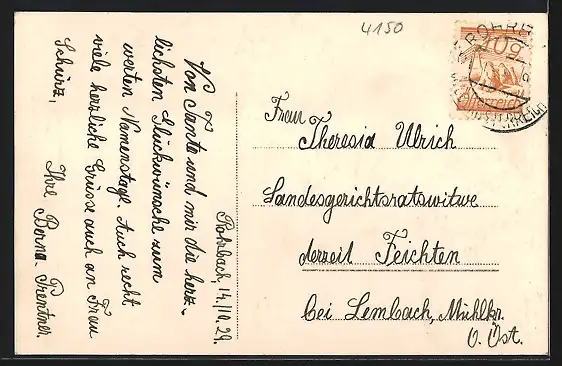 4150
ROHRB
10g
Österreich
Rohrbach, 14./10.29.
Von Tante und mir die herz-
lichsten Glückwünsche zum
werten Namenstage. Auch recht
viele herzliche Grüsse auch an Frau
Schürz,
Ihre Berna Prentner.
Frau
Theresia Ulrich
Landesgerichtsratswitwe
derzeit Feichten
bei Lembach, Mühlkr.
O. Öst.